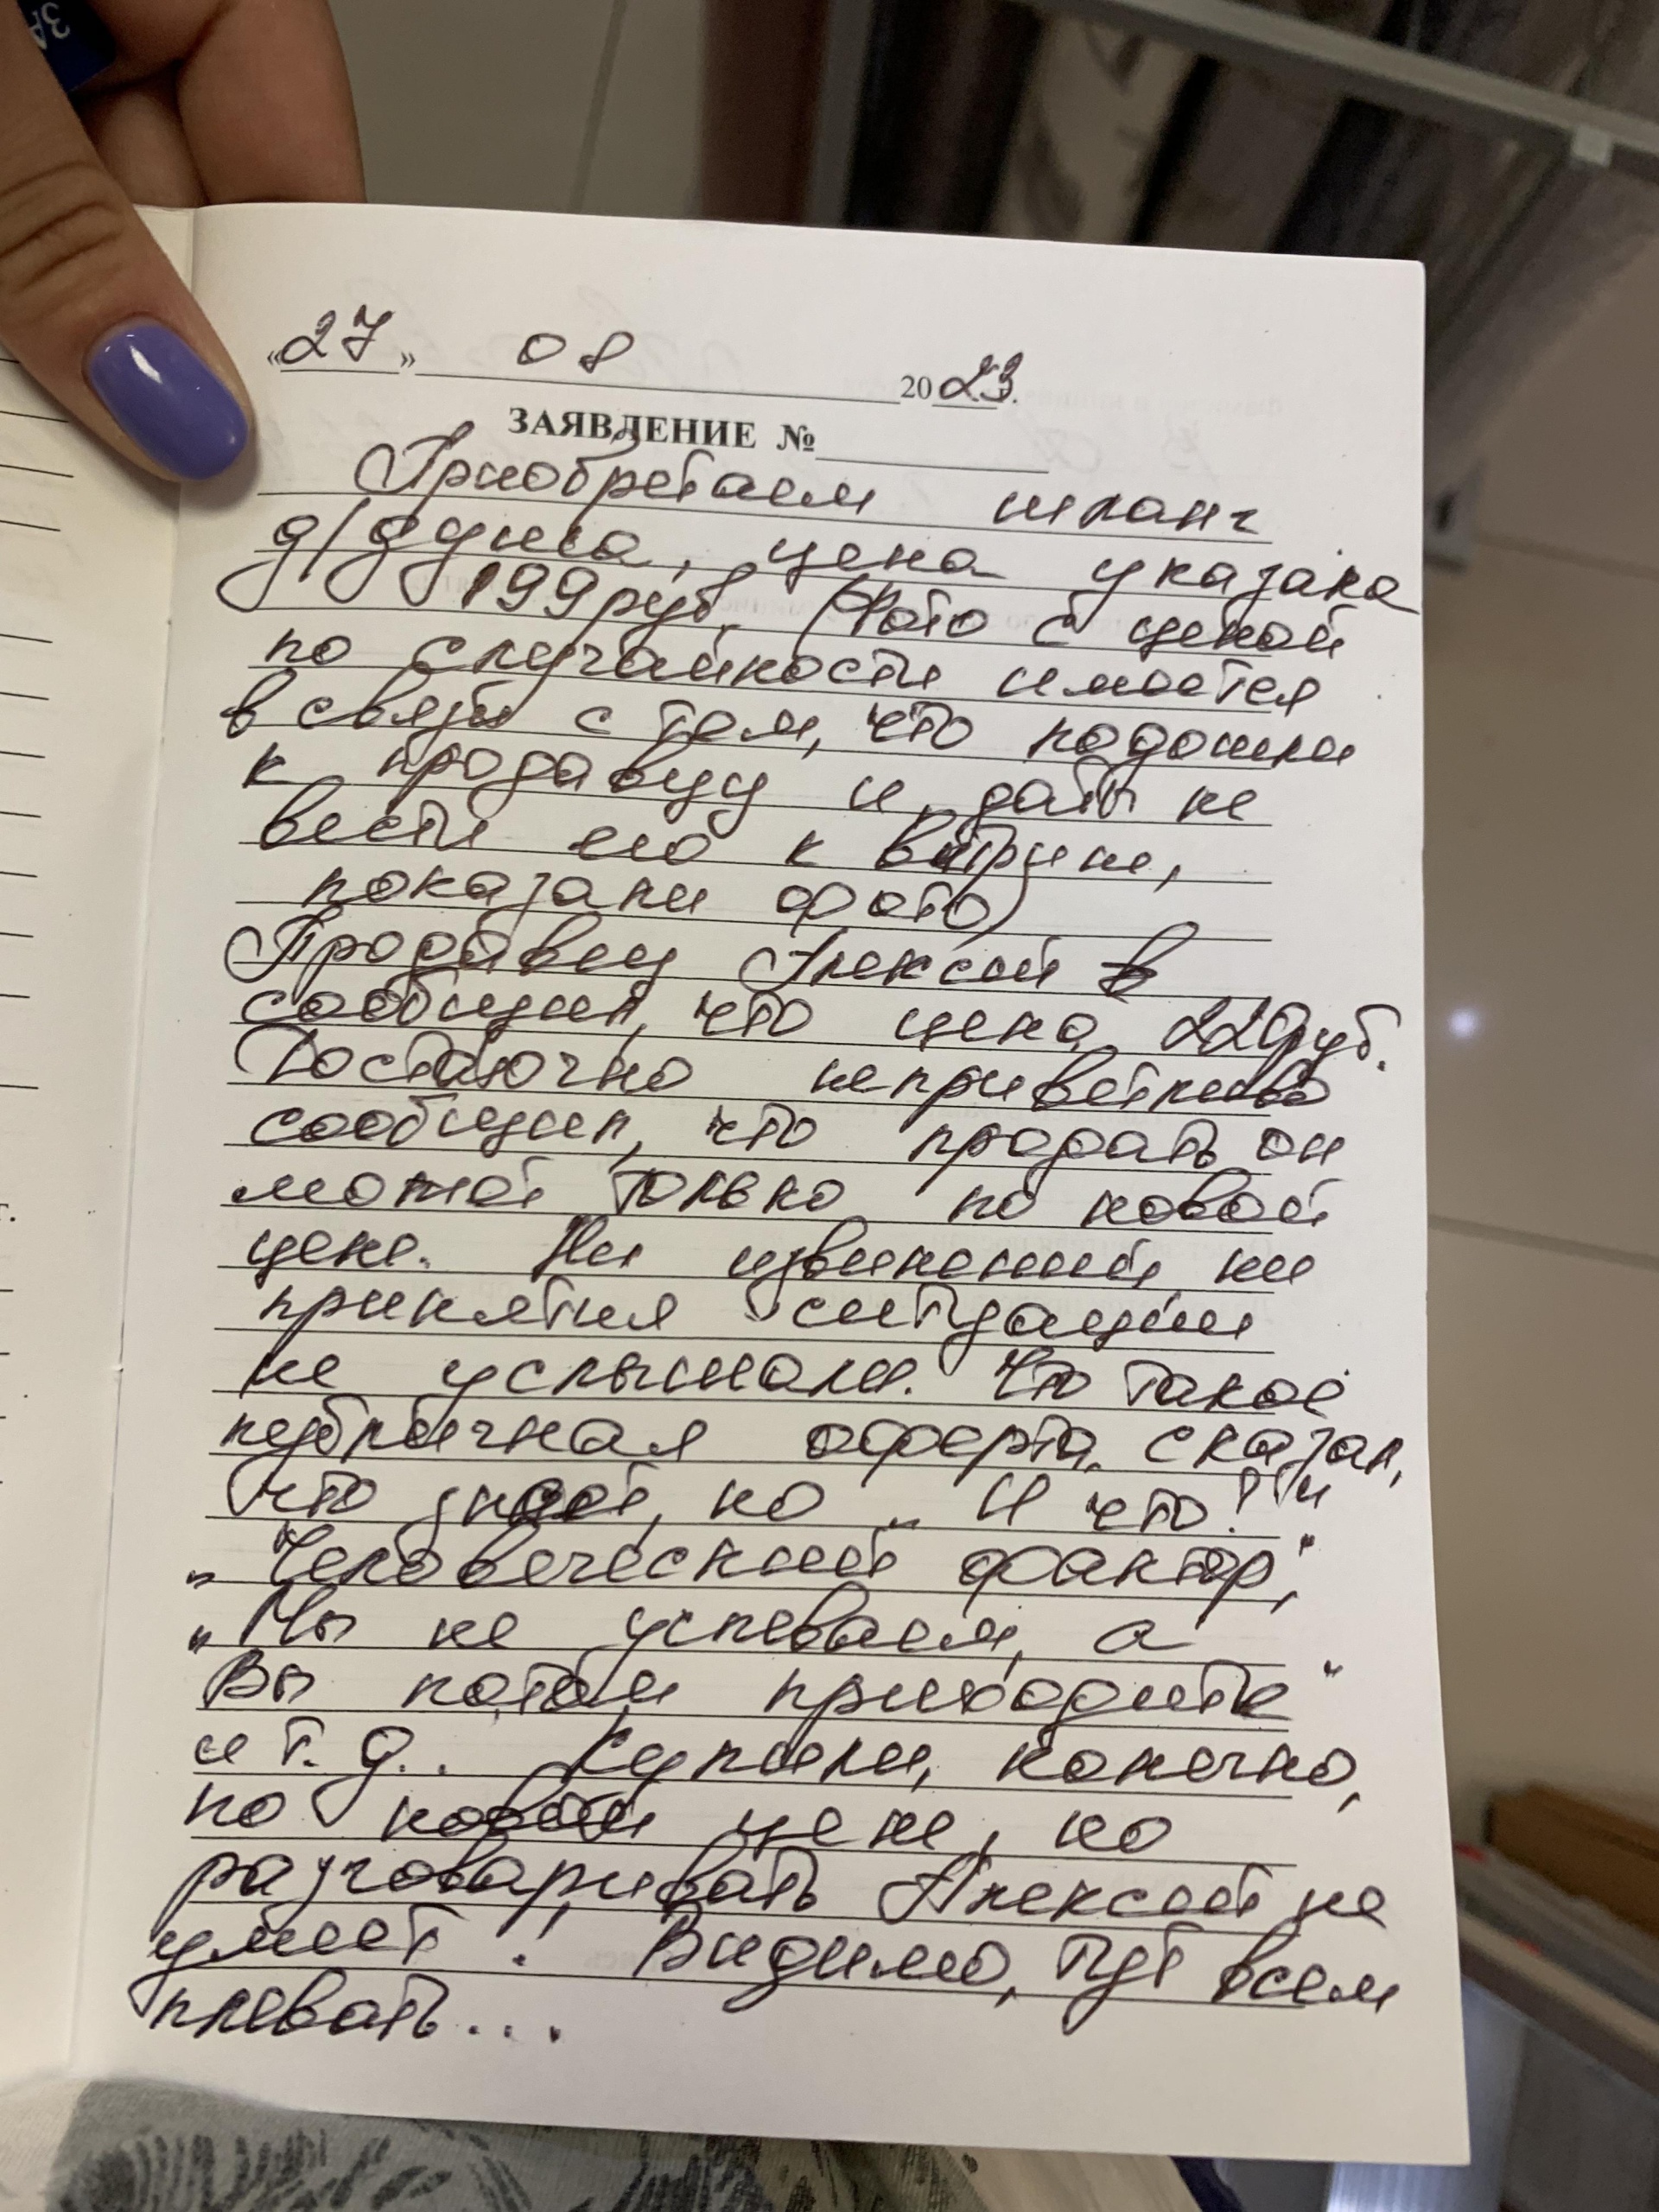 ЗА
«27» 08 2023.
ЗАЯВЛЕНИЕ №
Приобретаем шланг
д/душа, цена указана
199 руб. (Фото с ценой
по случайности имеется
в связи с тем, что подошли
к продавцу и, дабы не
вести его к витрине,
показали фото)
Продавец Алексей в
сообщил, что цена 220руб.
Достаточно неприветливо
сообщил, что продать он
может только по новой
цене. Ни извинений, ни
принятия ситуации
не услышали. Что такое
публичная оферта, сказал,
что знает, но „И что!?"
„Человеческий фактор",
„Мы не успеваем, а
Вы потом приходите"
и т. д.. Купили, конечно,
по новой цене, но
разговаривать Алексей не
умеет! Видимо, тут всем
плевать...
г.